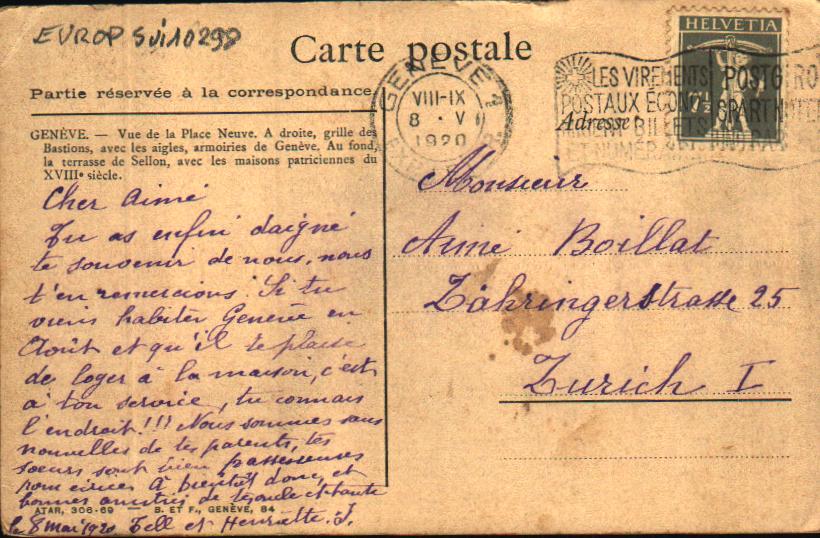 EUROP Sui10298
Carte postale
Partie réservée à la correspondance.
GENÈVE. — Vue de la Place Neuve. A droite, grille des
Bastions, avec les aigles, armoiries de Genève. Au fond,
la terrasse de Sellon, avec les maisons patriciennes du
XVIIIe siècle.
Cher Aimé
Tu as enfin daigné
te souvenir de nous, nous
t'en remercions. Si tu
viens habiter Genève en
Août et qu'il te plaise
de loger à la maison, c'est
à ton service, tu connais
l'endroit!!! Nous sommes sans
nouvelles de tes parents, tes
soeurs sont bien paresseuses
pour écrire. A bientôt donc, et
bonnes amitiés de ton oncle et tante
ATAR, 306-69 — B. ET F., GENÈVE, 84
le 8 mai 1920 Tell et Henriette. J.
HELVETIA
7½
GENÈVE 1
VIII-IX
8 · V
1920
LES VIREMENTS
POSTAUX ÉCONO
BILLETS
ET NUMÉR
POSTGIRO
SPART
Adresse:
Monsieur
Aimé Boillat
Zähringerstrasse 25
Zurich I